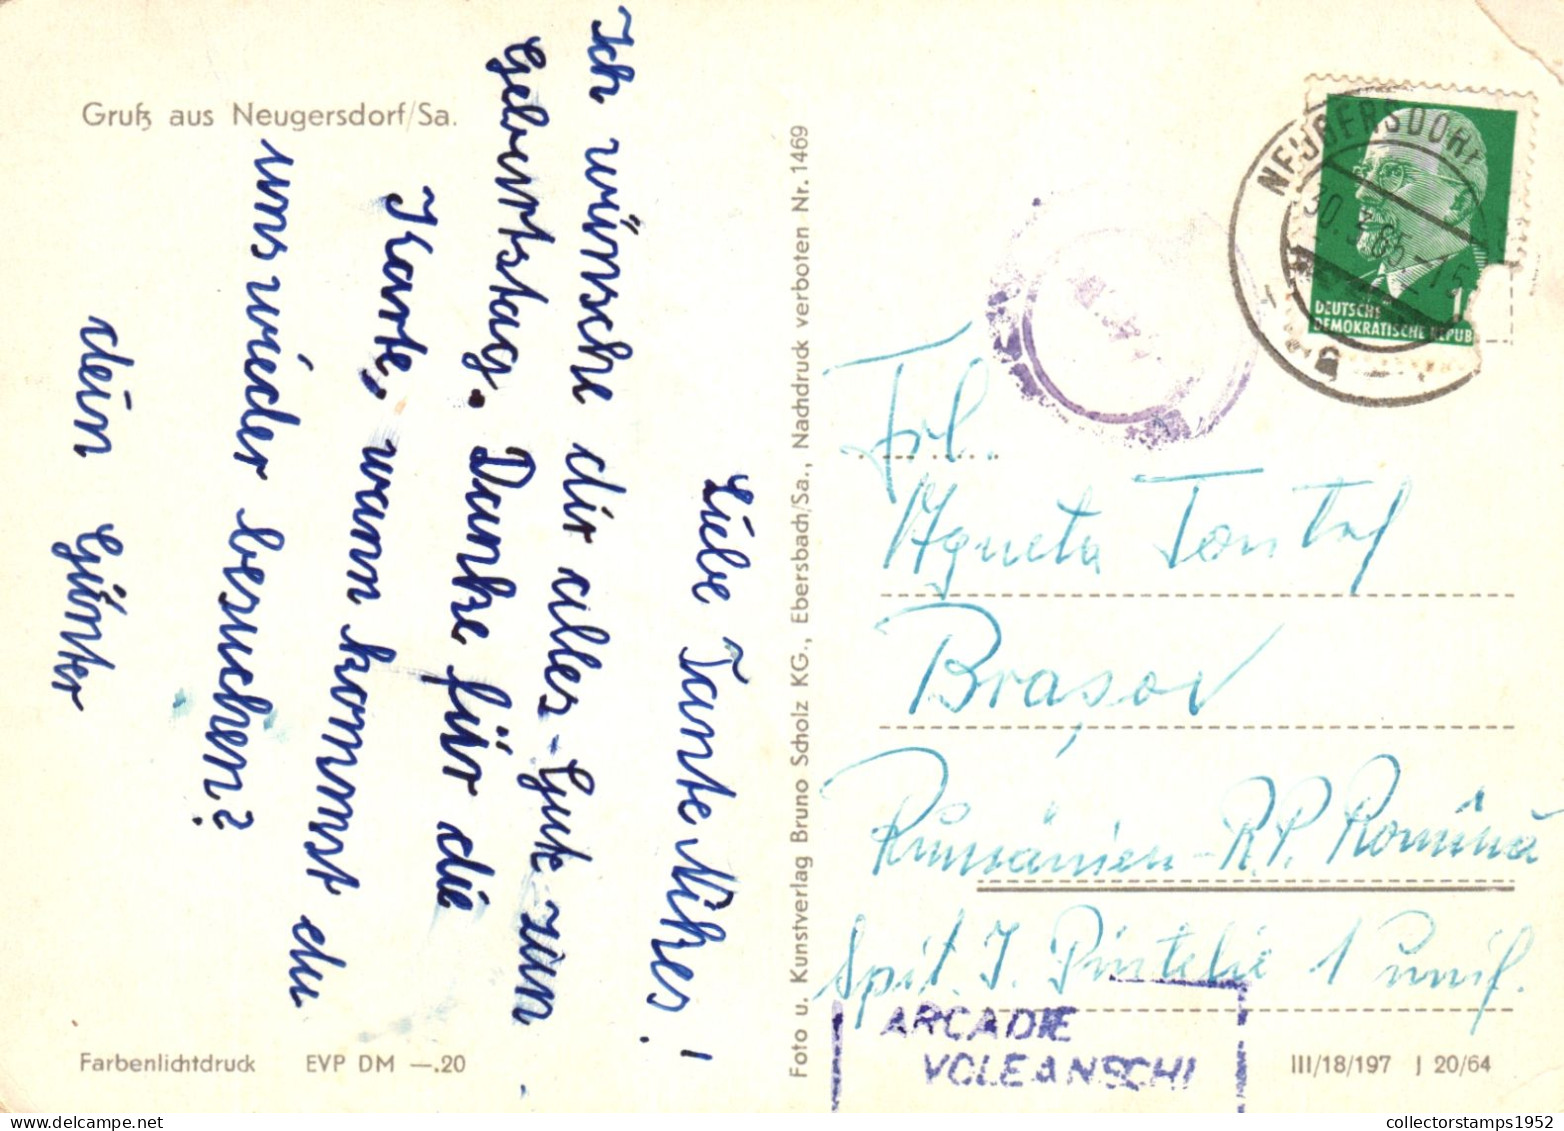 Gruß aus Neugersdorf/Sa.
Liebe Tante Nikes!
Ich wünsche dir alles Gute zun
Geburtstag. Danke für die
Karte, wann kommst du
uns wieder besuchen?
dein Günter
Farbenlichtdruck EVP DM —.20
Foto u. Kunstverlag Bruno Scholz KG., Ebersbach/Sa., Nachdruck verboten Nr. 1469
NEUGERSDORF
30.3.65.-15
DEUTSCHE
DEMOKRATISCHE REPUB
1
a
Frl.
Agneta
Brașov
Rumänien - RP. Romînă
Spit. I. Pintelie 1 unif.
ARCADIE
VOLEANSCHI
III/18/197 J 20/64
collectorstamps1952